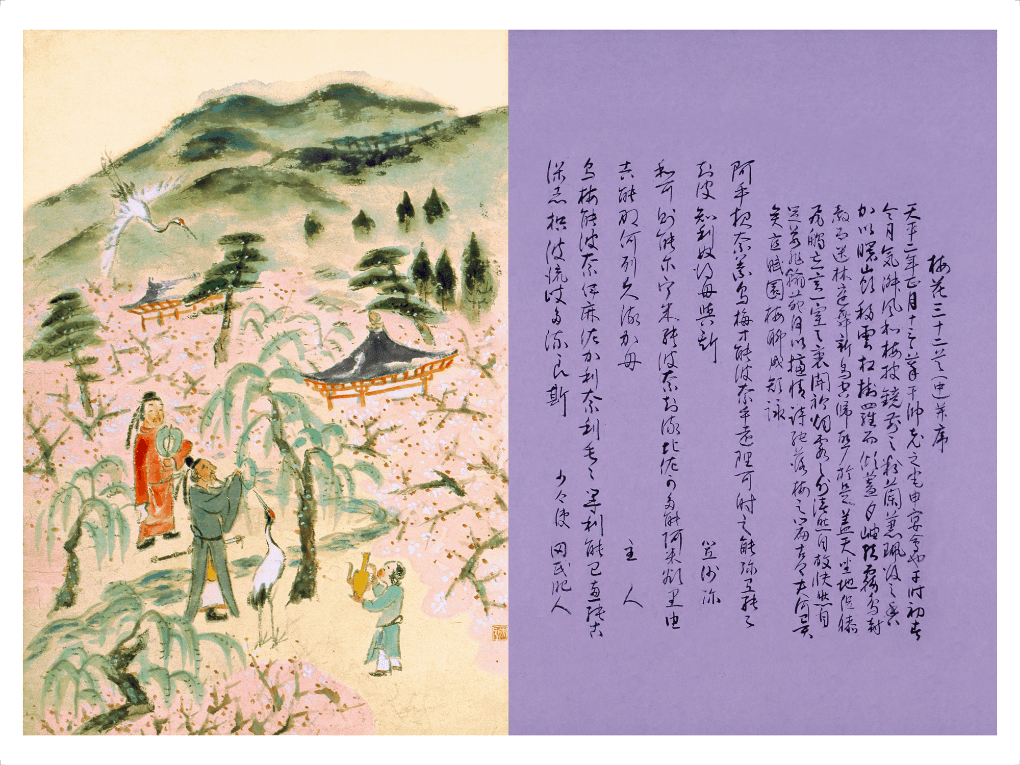 梅花三十二首并序
天平二年正月十三日萃于帥老之宅申宴會也于時初春
令月氣淑風和梅披鏡前之粉蘭薫珮後之香
加以曙嶺移雲松掛羅而傾盖夕岫結霧鳥封
縠而迷林庭舞新蝶空歸故鴈於是盖天坐地促膝
飛觴忘言一室之裏開衿煙霞之外淡然自放快然自
足若非翰苑何以攄情詩紀落梅之篇古今夫何異
矣宜賦園梅聊成短詠
阿乎夜奈義烏梅等能波奈乎遠理可射之能弥弖能々
知波知利奴得母與斯 笠沙弥
和何則能尓宇米能波奈知流比佐可多能阿米欲里由
吉能那何列久流加母 主人
烏梅能波奈伊麻佐加利奈利毛々等利能己恵能古
保志枳波流岐多流良斯 少令史田氏肥人